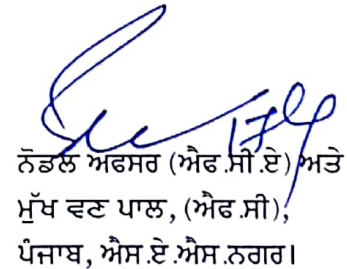 ਨੋਡਲ ਅਫਸਰ (ਐਫ.ਸੀ.ਏ) ਅਤੇ
ਮੁੱਖ ਵਣ ਪਾਲ, (ਐਫ.ਸੀ),
ਪੰਜਾਬ, ਐਸ.ਏ.ਐਸ.ਨਗਰ।